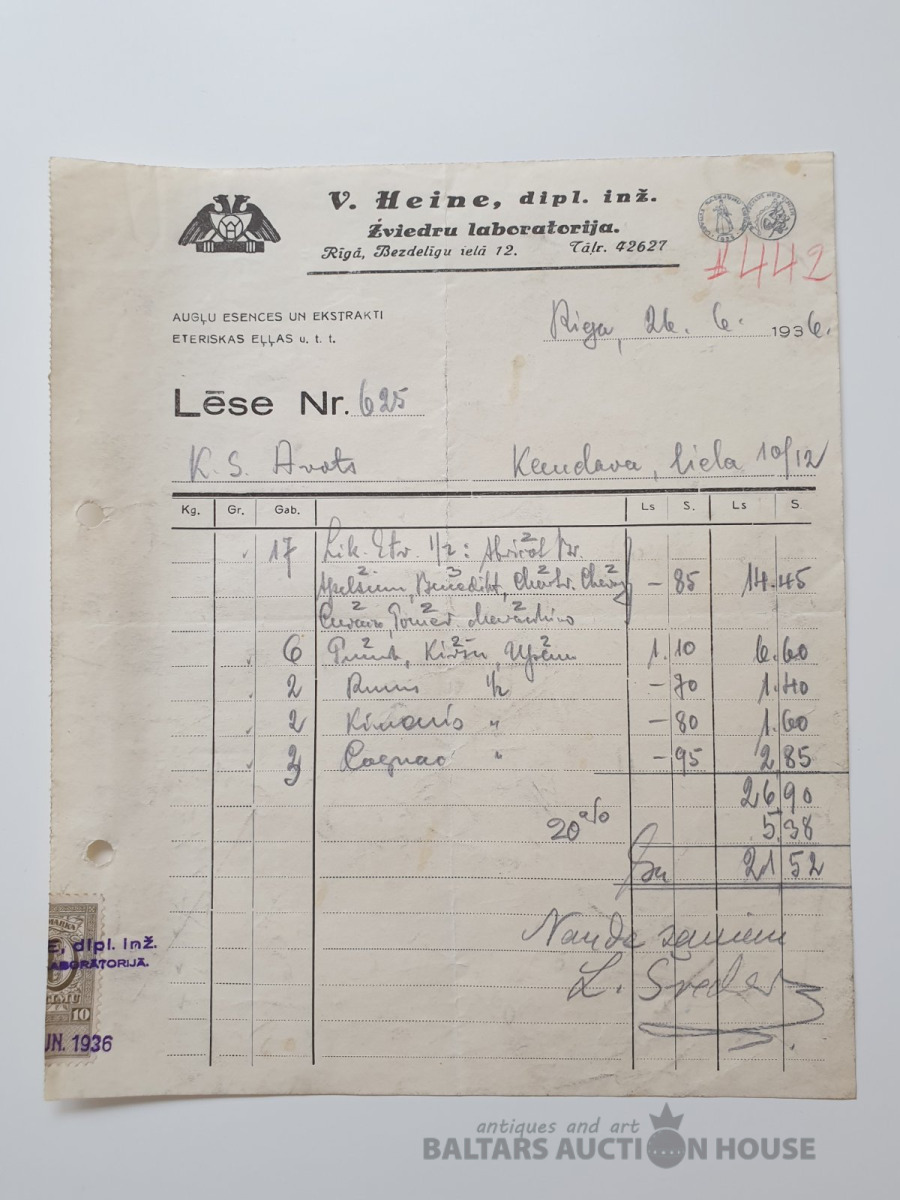 V. Heine, dipl. inž.
Žviedru laboratorija.
Rīgā, Bezdelīgu ielā 12. Tāļr. 42627
442
AUGĻU ESENCES UN EKSTRAKTI
ETERISKAS EĻĻAS u. t. t.
Riga, 26. 6. 1936.
Lēse Nr. 625
K. S. Avots Kandava, liela 10/12
Kg. Gr. Gab. Ls S. Ls S.
17 Lik. Etr. 1/2: Abricot 2
Apelsin 2, Benedikt 3, Chartr. 2 Cherry 2 - 85 14.45
Curaco 2 2 2
6 2 2 2 1.10 6.60
2 Rums 1/2 - 70 1.40
2 " - 80 1.60
3 Cognac " - 95 2.85
26 90
20 % 5.38
21 52
Naudu saņēmu
L.
E, dipl. inž.
LABORATORIJĀ.
10
UN. 1936
antiques and art
BALTARS AUCTION HOUSE